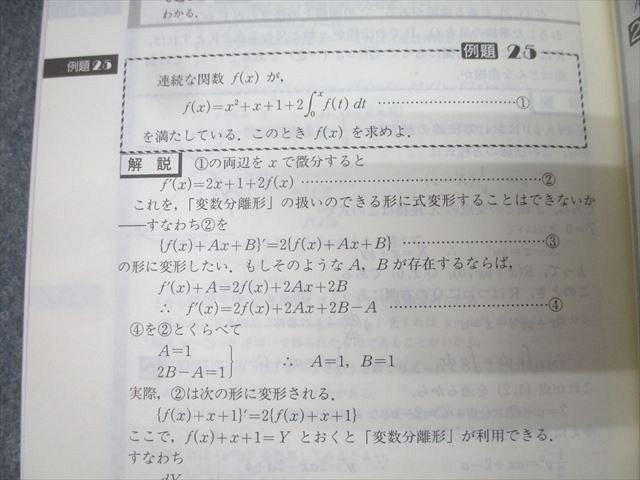 わかる.
例題 25
例題25
連続な関数 f(x) が,
f(x)=x²+x+1+2∫₀ˣf(t) dt ……………………………①
を満たしている. このとき f(x) を求めよ.
解 説 ①の両辺を x で微分すると
f′(x)=2x+1+2f(x) ……………………………………②
これを,「変数分離形」の扱いのできる形に式変形することはできないか
――すなわち②を
{f(x)+Ax+B}′=2{f(x)+Ax+B} ……………………③
の形に変形したい. もしそのような A, B が存在するならば,
f′(x)+A=2f(x)+2Ax+2B
∴ f′(x)=2f(x)+2Ax+2B−A ………………………④
④を②とくらべて
A=1
2B−A=1} ∴ A=1, B=1
実際, ②は次の形に変形される.
{f(x)+x+1}′=2{f(x)+x+1}
ここで, f(x)+x+1=Y とおくと「変数分離形」が利用できる.
すなわち
dY